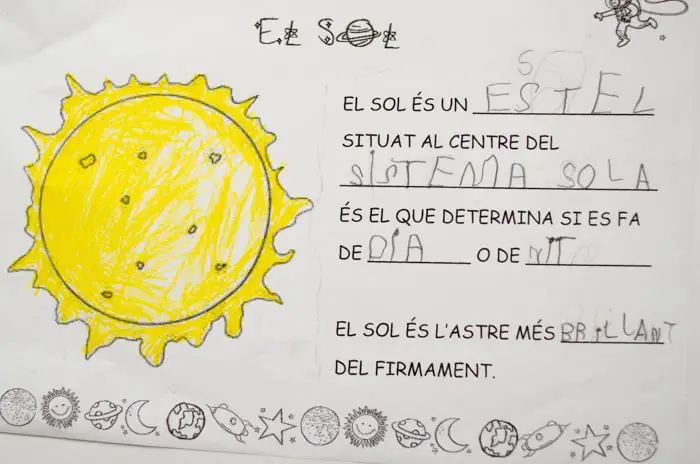 EL SOL
S
EL SOL ÉS UN ESTEL
SITUAT AL CENTRE DEL
SISTEMA SOLA
ÉS EL QUE DETERMINA SI ES FA
DE DÍA O DE NIT
EL SOL ÉS L'ASTRE MÉS BRILLANT
DEL FIRMAMENT.